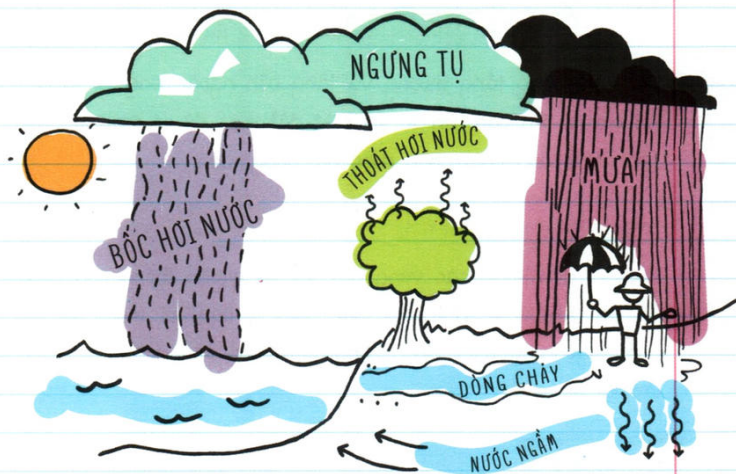 NGƯNG TỤ
THOÁT HƠI NƯỚC
MƯA
BỐC HƠI NƯỚC
DÒNG CHẢY
NƯỚC NGẦM